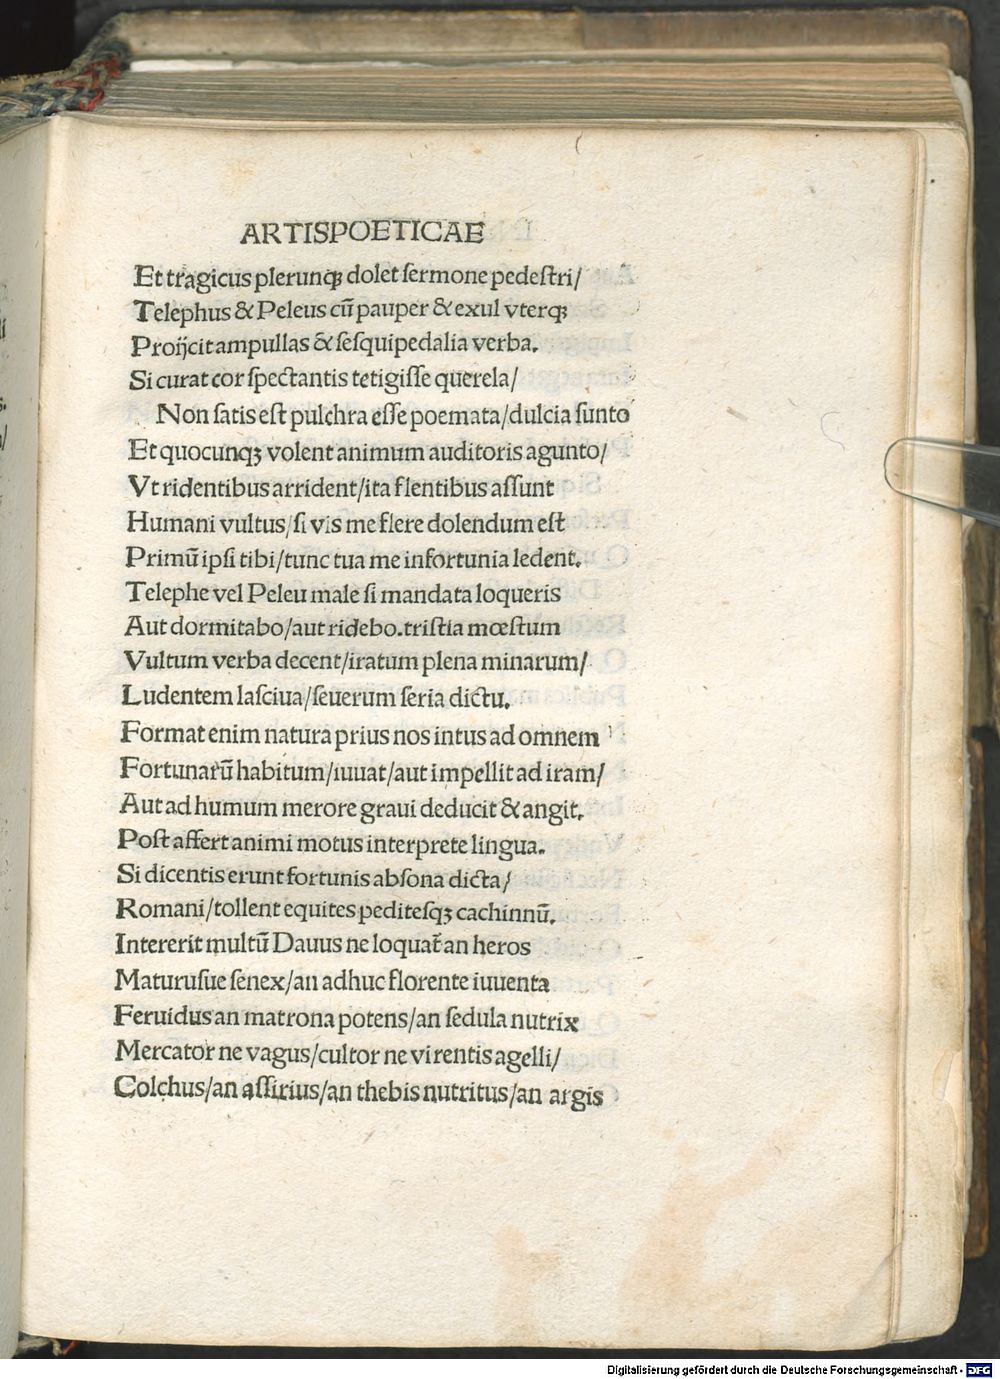 ARTISPOETICAE
Et tragicus plerunqꝫ dolet ſermone pedeſtri/
Telephus & Peleus cū pauper & exul vterqꝫ
Proijcit ampullas & ſeſquipedalia verba.
Si curat cor ſpectantis tetigiſſe querela/
Non ſatis eſt pulchra eſſe poemata/dulcia ſunto
Et quocunqꝫ volent animum auditoris agunto/
Vt ridentibus arrident/ita flentibus aſſunt
Humani vultus/ſi vis me flere dolendum eſt
Primū ipſi tibi/tunc tua me infortunia ledent.
Telephe vel Peleu male ſi mandata loqueris
Aut dormitabo/aut ridebo.triſtia mœſtum
Vultum verba decent/iratum plena minarum/
Ludentem laſciua/ſeuerum ſeria dictu.
Format enim natura prius nos intus ad omnem
Fortunarū habitum/iuuat/aut impellit ad iram/
Aut ad humum merore graui deducit & angit.
Poſt affert animi motus interprete lingua.
Si dicentis erunt fortunis abſona dicta/
Romani/tollent equites peditesqꝫ cachinnū.
Intererit multū Dauus ne loquat̄ an heros
Maturuſue ſenex/an adhuc florente iuuenta
Feruidus an matrona potens/an ſedula nutrix
Mercator ne vagus/cultor ne virentis agelli/
Colchus/an aſſirius/an thebis nutritus/an argis
Digitalisierung gefördert durch die Deutsche Forschungsgemeinschaft - DFG